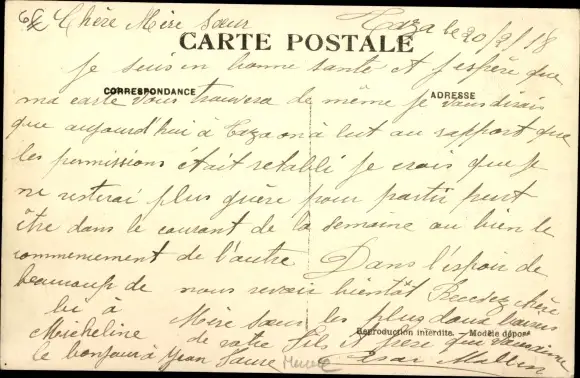 Chère Mère Sœur
Taza le 20/2/18
CARTE POSTALE
Je suis en bonne santé et j'espère que
CORRESPONDANCE
ADRESSE
ma carte vous trouvera de même je vous dirais
que aujourd'hui à Taza on à lut au rapport que
les permissions était retabli je crois que je
ne resterai plus guère pour partir peut
être dans le courant de la semaine ou bien le
commencement de l'autre. Dans l'espoir de
nous revoir bientôt Recevez chère
Mère Sœur les plus doux baisers
de votre Fils et frère qui vous aime
beaucoup de
à
Micheline
le bonjour à Jean
Reproduction interdite. — Modèle déposé